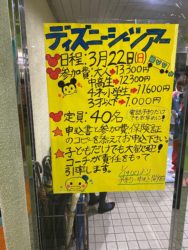 ディズニーシーツアー
日程:3月22日(日)
参加費:大人→13300円
中高生→12300円
4才~小学生→11600円
3才以下→1,000円
定員:40名
申込書と参加費、保険証
のコピーを添えてお申込下さい。
子どもだけでも大歓迎!
コーチが責任をもって
引率します。